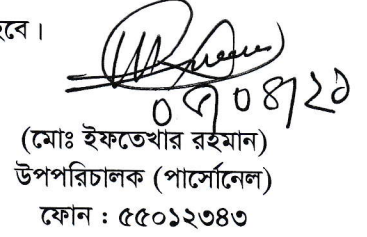 হবে।
(মোঃ ইফতেখার রহমান)
উপপরিচালক (পার্সোনেল)
ফোন : ৫৫০১২৩৪৩